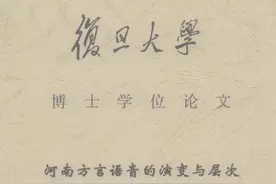 復旦大學
博士学位论文
河南方言语音的演变与层次